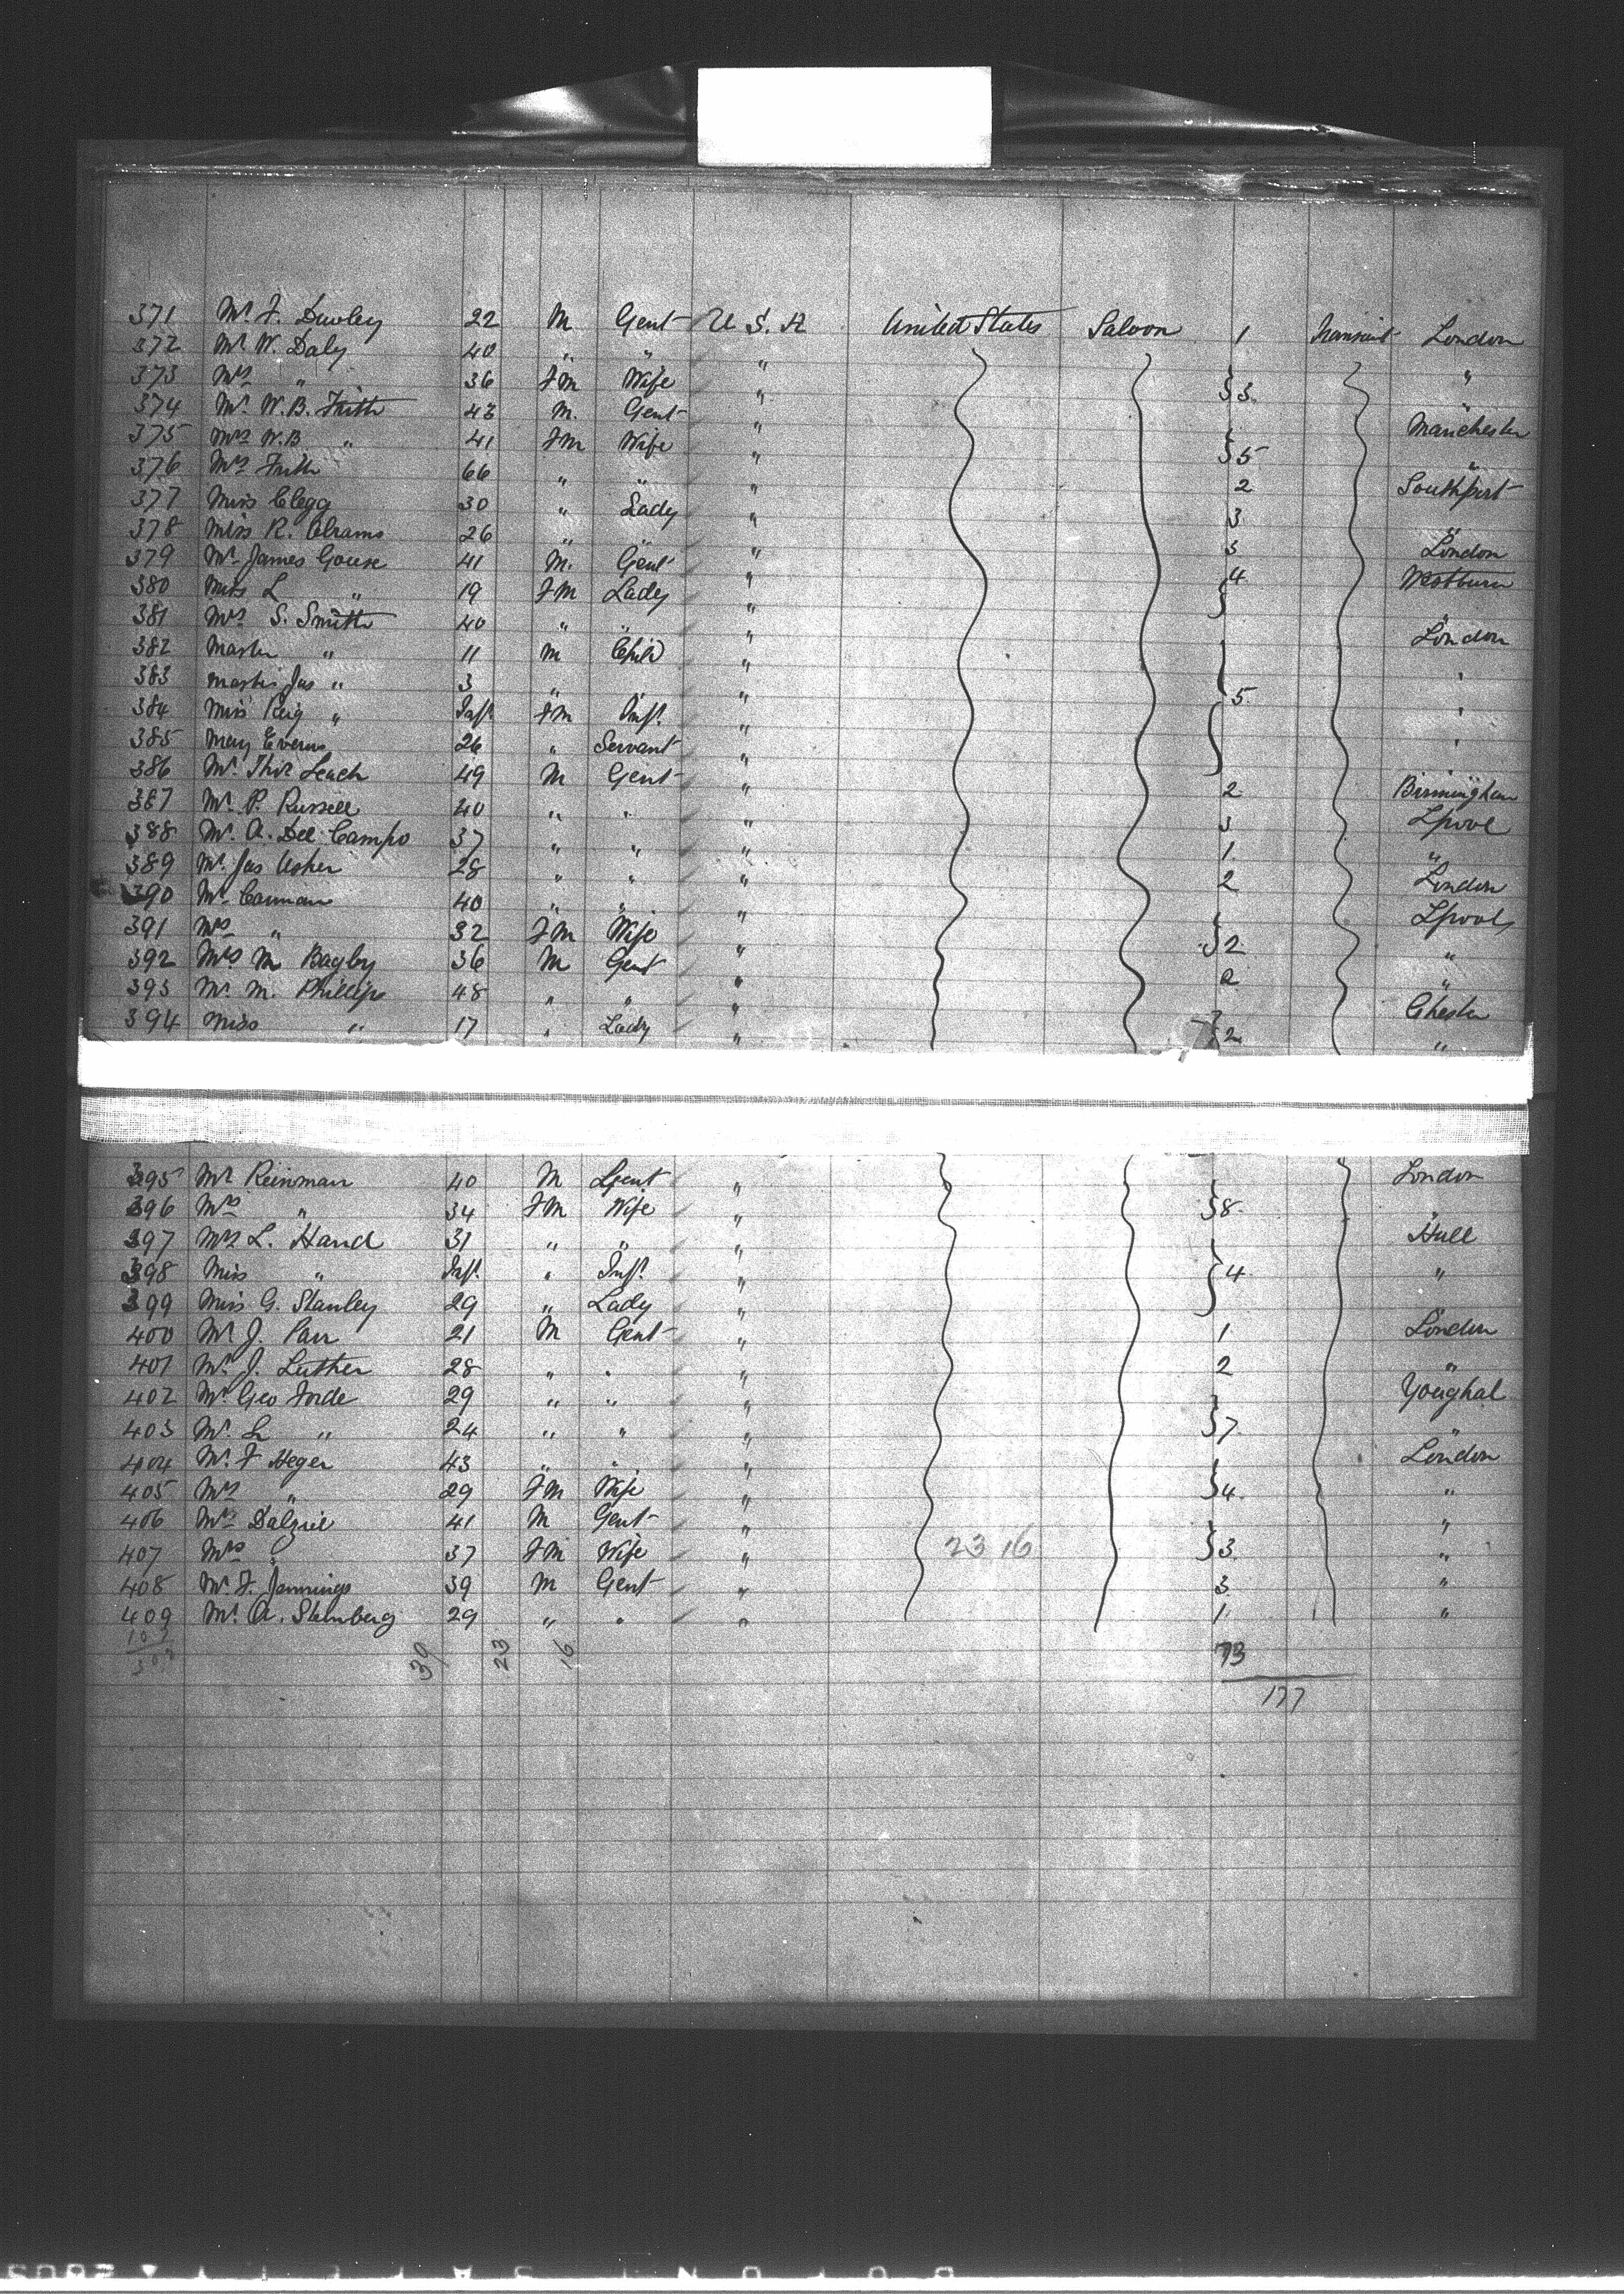 371 Mr. F. Duoley 22 M Gent U.S.A United States Saloon 1 Transient London
372 Mr. W. Daly 40 " " " "
373 Mrs " 36 FM Wife " } 3
374 Mr. W.B. Frith 43 M. Gent " Manchester
375 Mrs W.B " 41 FM Wife " } 5 "
376 Mrs Frith 66 " " " 2 Southport
377 Miss Clegg 30 " Lady " 3 "
378 Miss R. Abrams 26 " " " 3 London
379 Mr. James Gouse 41 M. Gent " 4 Westburn
380 Miss L " 19 FM Lady " } "
381 Mrs S. Smith 40 " " " London
382 Master " 11 M Child " "
383 Master Jas " 3 " " " 5 "
384 Miss Reig " Inft. FM Inft. " "
385 May Everns 26 " Servant "
386 Mr. Thos Leach 49 M Gent " 2 Birmingham
387 Mr. P. Russell 40 " " " 3 Lpool
388 Mr. A. Del Campo 37 " " " 1 "
389 Mr. Jas Usher 28 " " " 2 London
390 Mr. Carman 40 " " " Lpool
391 Mrs " 32 FM Wife " } 2 "
392 Mrs M Bagby 36 M Gent " 2 "
393 Mr. M. Phillips 48 " " " Chester
394 Miss " 17 " Lady " } 2 "
395 Mr Reinman 40 M Gent " London
396 Mrs " 34 FM Wife " } 8 "
397 Mrs L. Hand 31 " " " Hull
398 Miss " Inft. " Inft. " } 4 "
399 Miss G. Stanley 29 " Lady "
400 Mr J. Parr 21 M Gent " 1 London
401 Mr. J. Luther 28 " " " 2 "
402 Mr. Geo Forde 29 " " " Youghal
403 Mr. L " 24 " " " } 7 "
404 Mr. F Heger 43 " " " London
405 Mrs " 29 FM Wife " } 4 "
406 Mr. Dalziel 41 M Gent " "
407 Mrs " 37 FM Wife " 23 16 } 3 "
408 Mr. F. Jennings 39 M Gent " 3 "
409 Mr. A. Steinberg 29 " " " 1 "
39 23 16 73
177